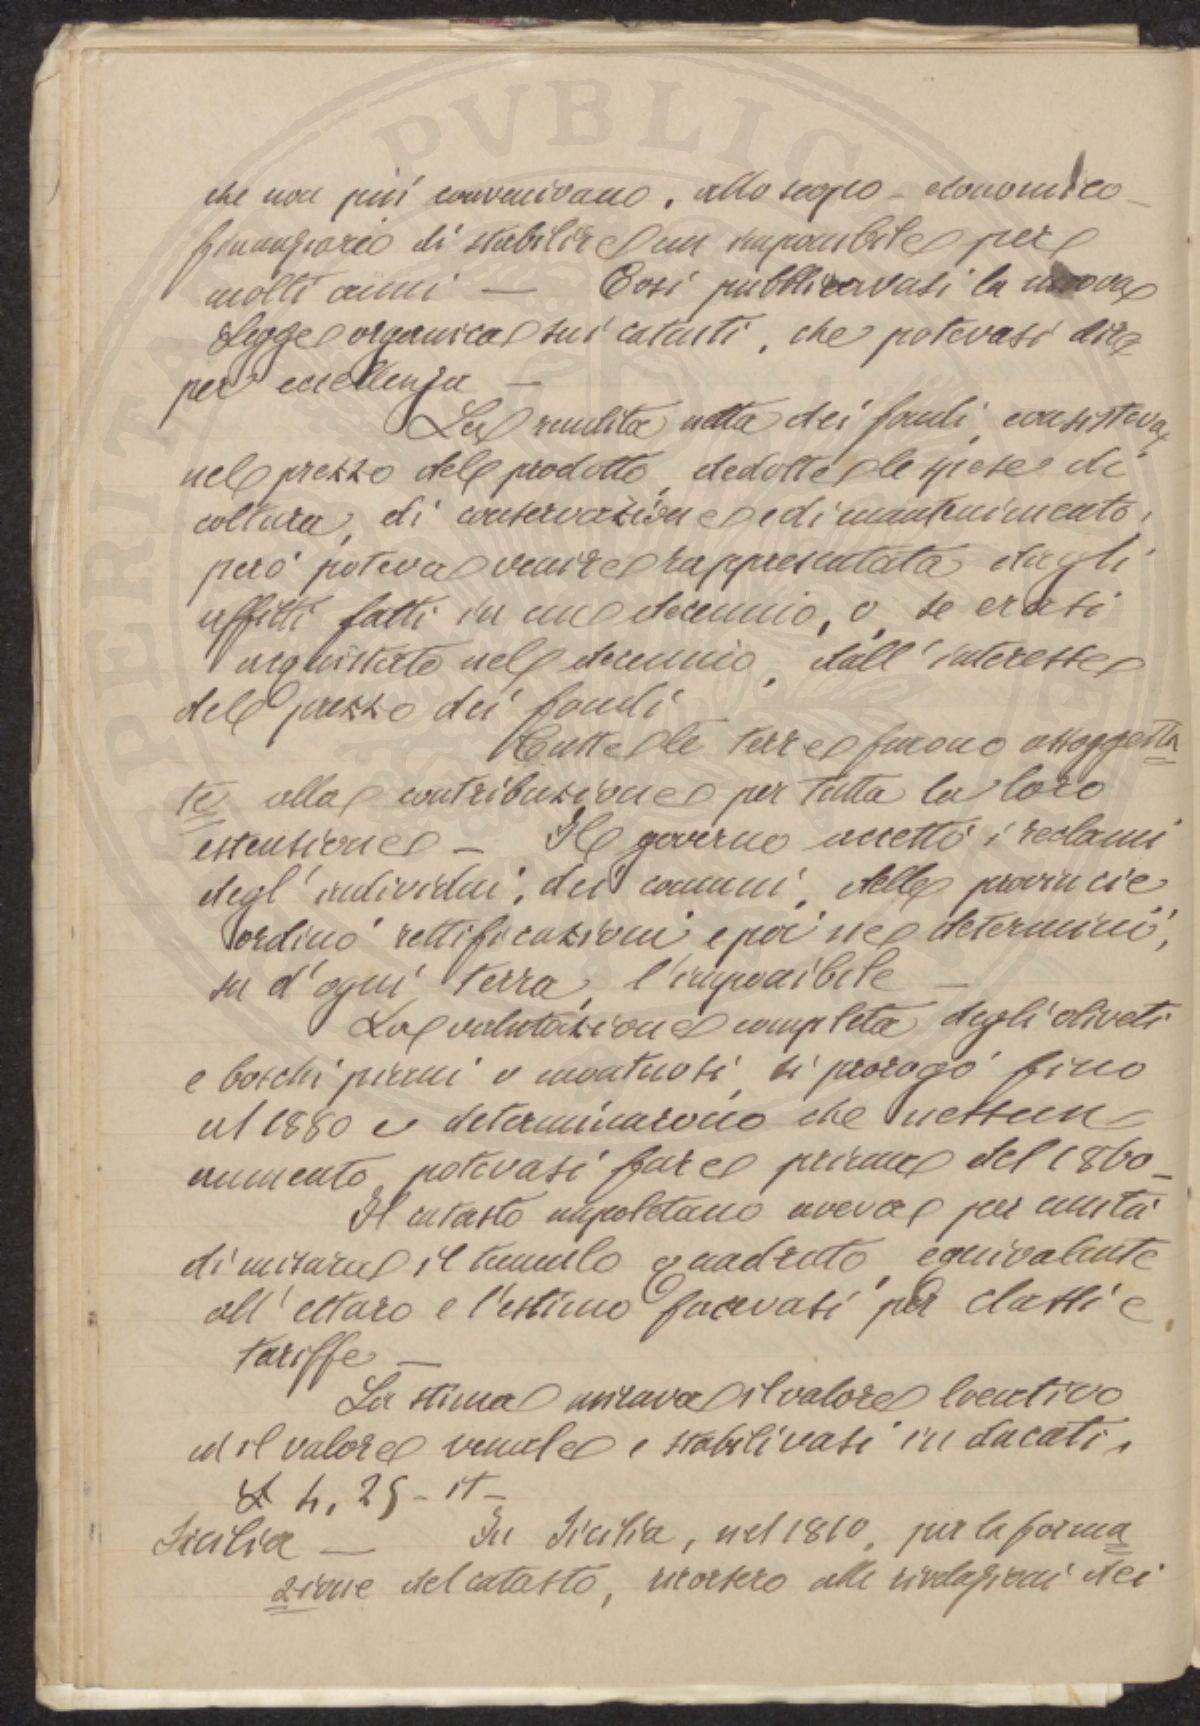 che non più convenivano, allo scopo - economico -
finanziario di stabilire un imponibile per
molti anni — Così pubblicavasi la nuova
Legge organica sui catasti, che potevasi dire
per eccellenza —
La rendita netta dei fondi, consisteva
nel prezzo del prodotto, dedotte le spese di
coltura, di conservazione e di mantenimento,
però poteva venire rappresentata dagli
affitti fatti in un decennio, o, se erasi
acquistato nel decennio, dall'interesse
del prezzo dei fondi
Tutte le terre furono assoggetta
te alla contribuzione per tutta la loro
estensione — Il governo accettò i reclami
degl'individui, dei comuni, delle provincie
ordinò rettificazioni e poi ne determinò,
su d'ogni terra, l'imponibile —
La valutazione completa degli oliveti
e boschi piani o montuosi, si prorogò fino
al 1880 e determinarono che nessun
aumento potevasi fare prima del 1860 -
Il catasto napoletano aveva per unità
di misura il tumulo quadrato, equivalente
all'ettaro e l'estimo facevasi per classi e
tariffe —
La stima mirava il valore locativo
ed il valore venale e stabilivasi in ducati,
4,25 - it -
Sicilia — In Sicilia, nel 1810, per la forma
zione del catasto, ricorsero alle rivelazioni dei